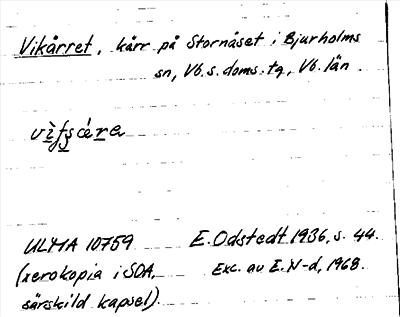 Vikårret, kärr på Stornäset i Bjurholms
sn, Vb. s. doms. tg, Vb. län.
ULMA 10759 E. Odstedt 1936, s. 44.
(xerokopia i SOA, Exc. av E. N-d, 1968.
särskild kapsel).